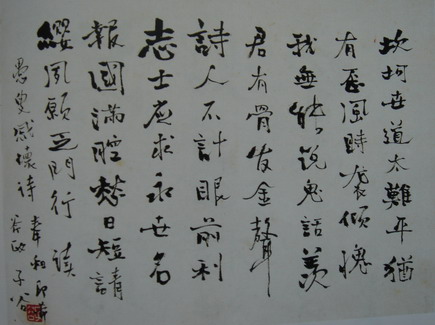 坎坷世道太難平猶
有歪風時襲傾愧
我無能說鬼話羨
君有骨发金聲
詩人不計眼前利
志士應求永世名
報國滿腔愁日短請
纓夙願門行 讀
愚叟感懷詩 奉和即希
政 子谷